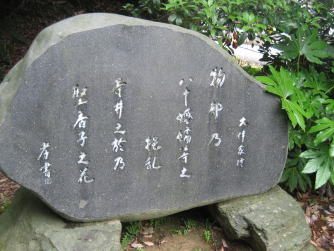 大伴家持
物部乃
八十嬬等之
挹乱
寺井之於乃
堅香子之花
書